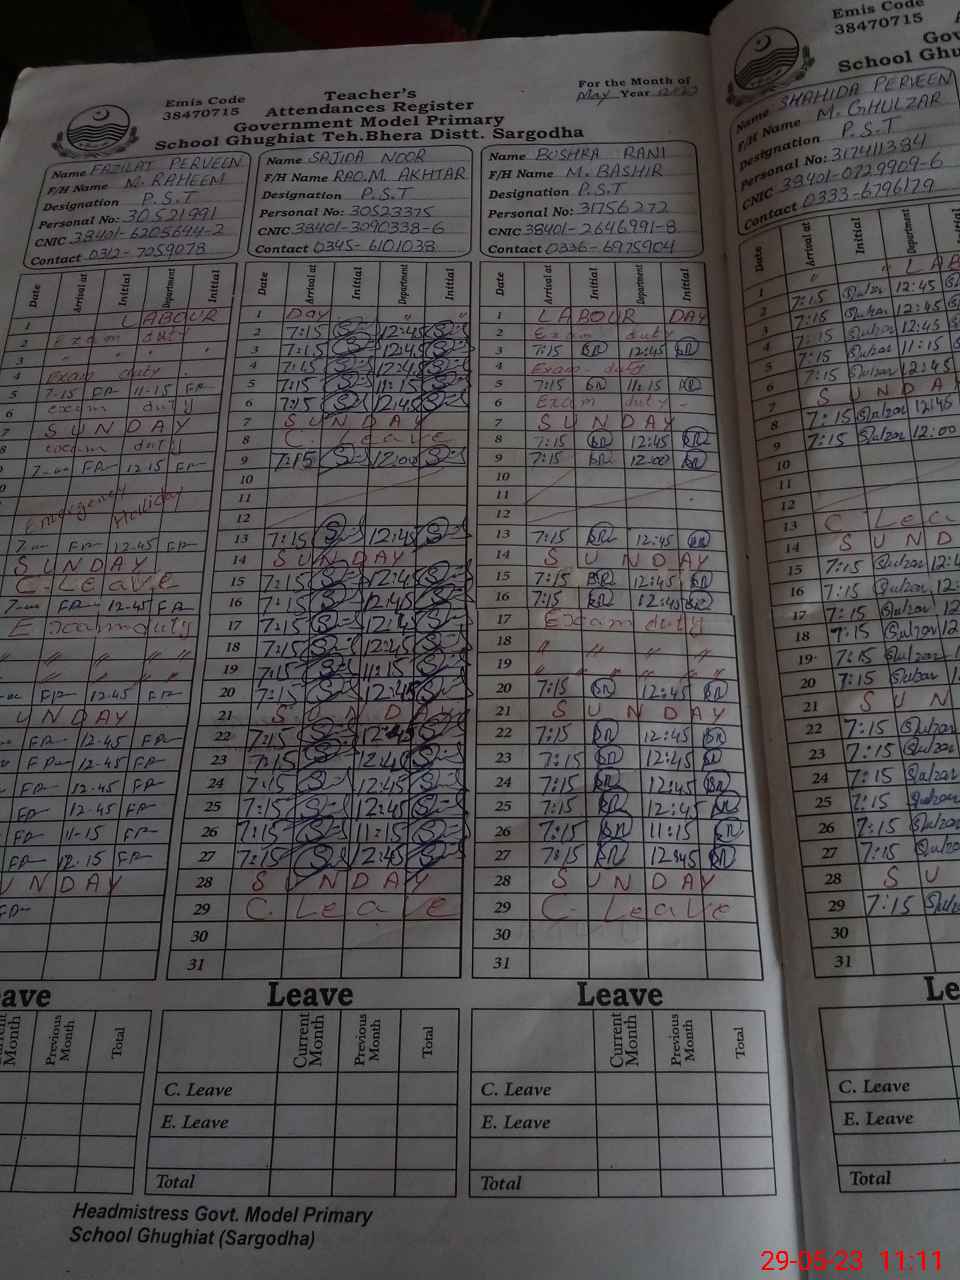 Teacher's
Attendances Register
Government Model Primary
School Ghughiat Teh.Bhera Distt. Sargodha
Emis Code
38470715
For the Month of
May Year
Name FAZILAT PERVEEN
F/H Name M. RAHEEM
Designation P.S.T
Personal No: 30521991
CNIC 38401-6205644-2
Contact 0312-7059078
Name SAJIDA NOOR
F/H Name RAO.M. AKHTAR
Designation P.S.T
Personal No: 30523375
CNIC 38401-3090338-6
Contact 0345-6101038
Name BUSHRA RANI
F/H Name M. BASHIR
Designation P.S.T
Personal No: 31756272
CNIC 38401-2646991-8
Contact 0336-6975904
Date Arrival at Initial Department Initial
1 LABOUR
2 Exam duty
3 " " "
4 Exam duty
5 7-15 FP 11-15 FP
6 exam duty
7 SUNDAY
8 exam duty
12.15 FP
Emergency Holliday
FP 12.45 FP
SUNDAY
C. Leave
FP 12-45 FP
Exam duty
" " " "
" " " "
FP 12.45 FP
UNDAY
FP 12-45 FP
FP 12-45 FP
FP 12.45 FP
FP 12-45 FP
FP 11-15 FP
FP 12.15 FP
UNDAY
FP
Date Arrival at Initial Department Initial
1 Day " "
2 7:15 12:45
3 7:15 12:45
4 7:15 12:45
5 7:15 11:15
6 7:15 12:45
7 SUNDAY
8 C. Leave
9 7:15 12:00
10
11
12
13 7:15 12:45
14 SUNDAY
15 7:15 12:45
16 7:15 12:45
17 7:15 12:45
18 7:15 12:45
19 7:15 11:15
20 7:15 12:45
21 SUNDAY
22 7:15 12:45
23 7:15 12:45
24 7:15 12:45
25 7:15 12:45
26 7:15 11:15
27 7:15 12:45
28 SUNDAY
29 C. Leave
30
31
Date Arrival at Initial Department Initial
1 LABOUR DAY
2 Exam duty
3 7:15 BR 12:45 BR
4 Exam duty
5 7:15 BR 11:15 BR
6 Exam duty -
7 SUNDAY
8 7:15 BR 12:45 BR
9 7:15 BR 12:00 BR
10
11
12
13 7:15 BR 12:45 BR
14 SUNDAY
15 7:15 BR 12:45 BR
16 7:15 BR 12:45 BR
17 Exam duty
18 " " " "
19 " " " " "
20 7:15 BR 12:45 BR
21 SUNDAY
22 7:15 BR 12:45 BR
23 7:15 BR 12:45 BR
24 7:15 BR 12:45 BR
25 7:15 BR 12:45 BR
26 7:15 BR 11:15 BR
27 7:15 BR 12:45 BR
28 SUNDAY
29 C. Leave
30
31
ave
Current Month Previous Month Total
Leave
Current Month Previous Month Total
C. Leave
E. Leave
Total
Leave
Current Month Previous Month Total
C. Leave
E. Leave
Total
Headmistress Govt. Model Primary
School Ghughiat (Sargodha)
Emis Code
38470715
Gov
School Ghu
Name SHAHIDA PERVEEN
F/H Name M. GHULZAR
Designation P.S.T
Personal No: 317411384
CNIC 38401-0729909-6
Contact 0333-6796179
Date Arrival at Initial Department Initial
1 " " LAB
2 7:15 Gulzar 12:45
3 7:15 Gulzar 12:45
4 7:15 Gulzar 12:45
5 7:15 Gulzar 11:15
6 7:15 Gulzar 12:45
7 SUNDA
8 7:15 Gulzar 12:45
9 7:15 Gulzar 12:00
10
11
12
13 C. Lea
14 SUND
15 7:15 Gulzar 12:4
16 7:15 Gulzar 12:
17 7:15 Gulzar 12:
18 7:15 Gulzar 12:4
19 7:15 Gulzar
20 7:15 Gulzar 12:
21 SUN
22 7:15 Gulzar
23 7:15 Gulzar
24 7:15 Gulzar
25 7:15 Gulzar
26 7:15 Gulzar
27 7:15 Gulzar
28 SU
29 7:15 Gulza
30
31
Le
C. Leave
E. Leave
Total
29-05-23 11:11